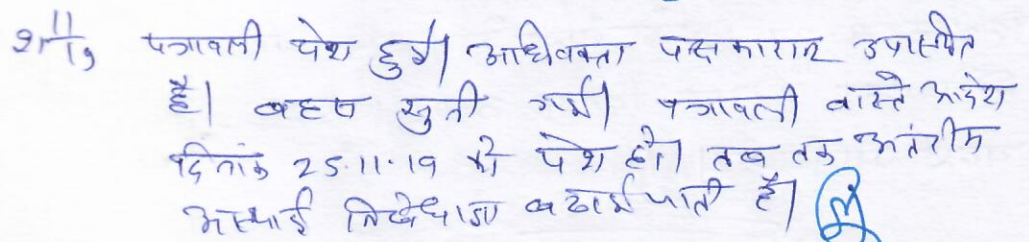 21/11/19 पत्रावली पेश हुई। अधिवक्ता पक्षकारान उपस्थित
है। बहस सुनी गयी। पत्रावली वास्ते आदेश
दिनांक 25.11.19 को पेश हो। तब तक अंतरीम
अस्थाई निषेधाज्ञा बढाई जाती है।